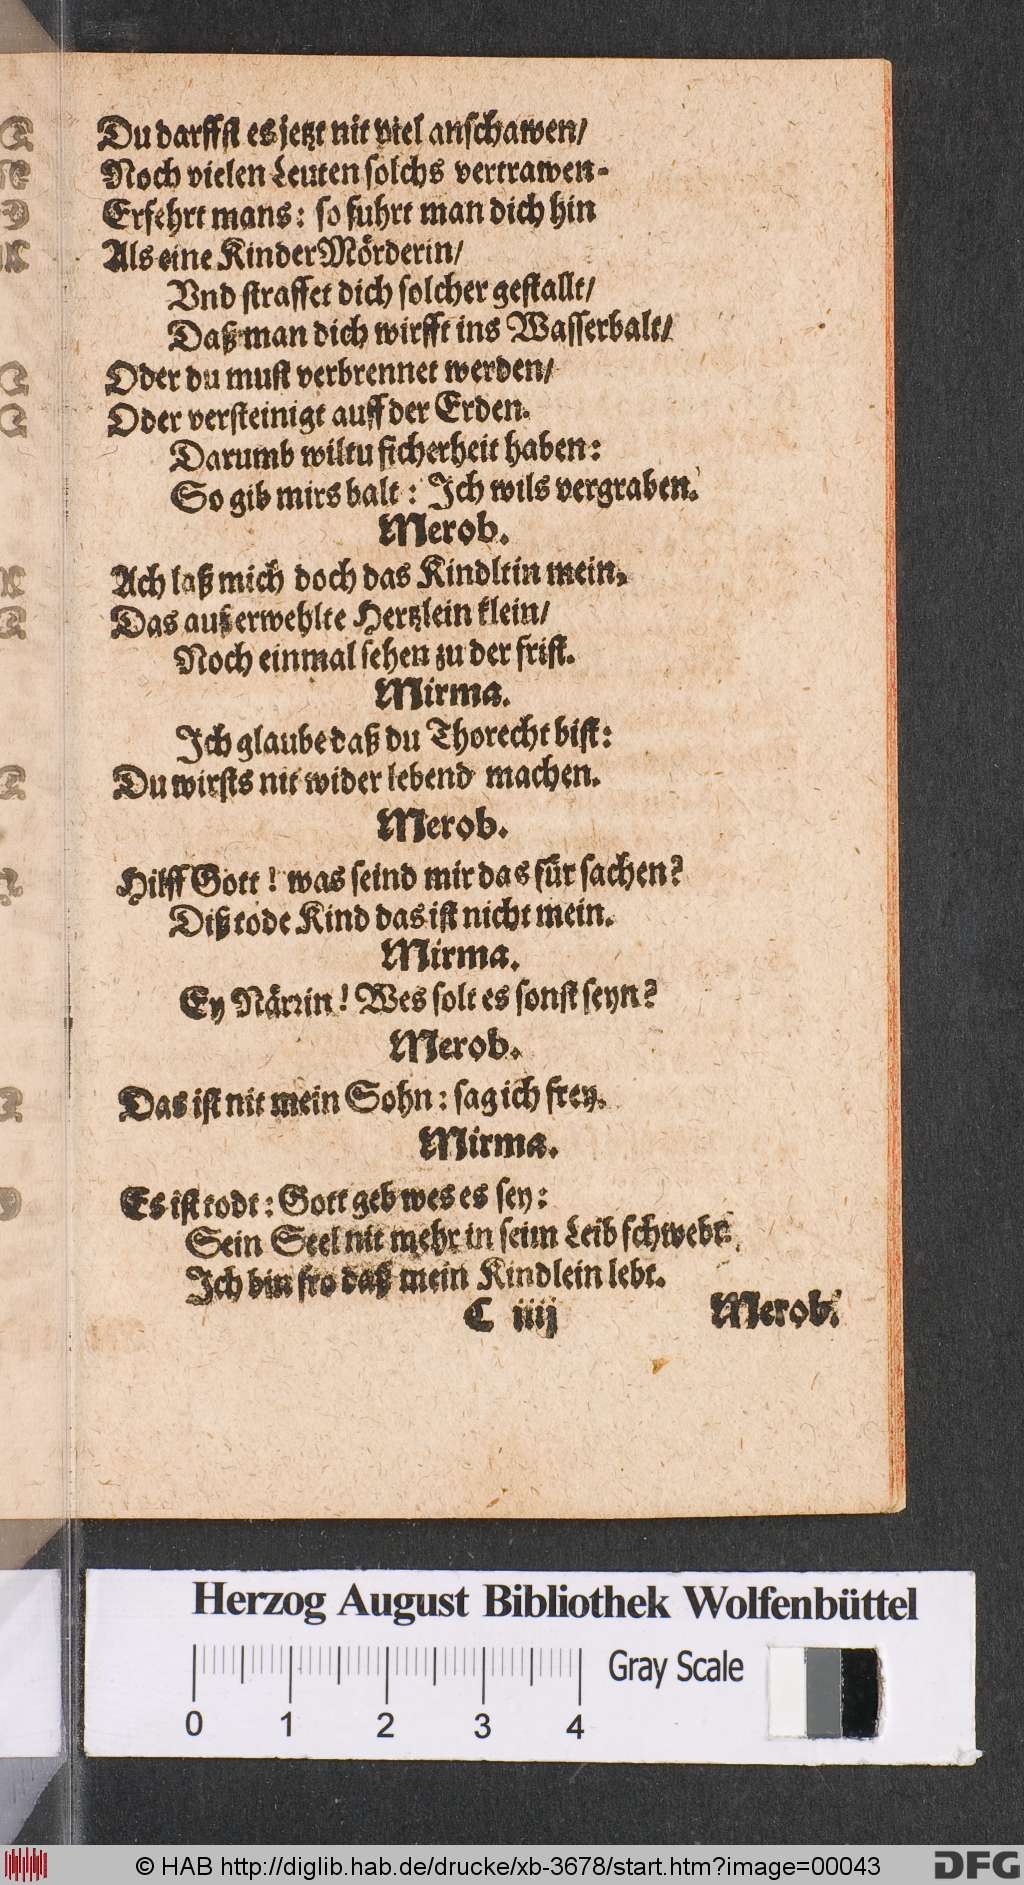 Du darffst es jetzt nit viel anschawen/
Noch vielen Leuten solchs vertrawen-
Erfehrt mans: so fuhrt man dich hin
Als eine KinderMörderin/
Vnd straffet dich solcher gestallt/
Daß man dich wirfft ins Wasserbalt/
Oder du must verbrennet werden/
Oder versteinigt auff der Erden.
Darumb wiltu sicherheit haben:
So gib mirs balt: Ich wils vergraben.
Merob.
Ach laß mich doch das Kindltin mein,
Das außerwehlte Hertzlein klein/
Noch einmal sehen zu der frist.
Mirma.
Ich glaube daß du Thorecht bist:
Du wirsts nit wider lebend machen.
Merob.
Hilff Gott! was seind mir das für sachen?
Diß tode Kind das ist nicht mein.
Mirma.
Ey Närrin! Wes solt es sonst seyn?
Merob.
Das ist nit mein Sohn: sag ich frey.
Mirma.
Es ist todt: Gott geb wes es sey:
Sein Seel nit mehr in seim Leib schwebt.
Ich bin fro daß mein Kindlein lebt.
C iiij Merob.
Herzog August Bibliothek Wolfenbüttel
Gray Scale
0 1 2 3 4
© HAB http://diglib.hab.de/drucke/xb-3678/start.htm?image=00043
DFG